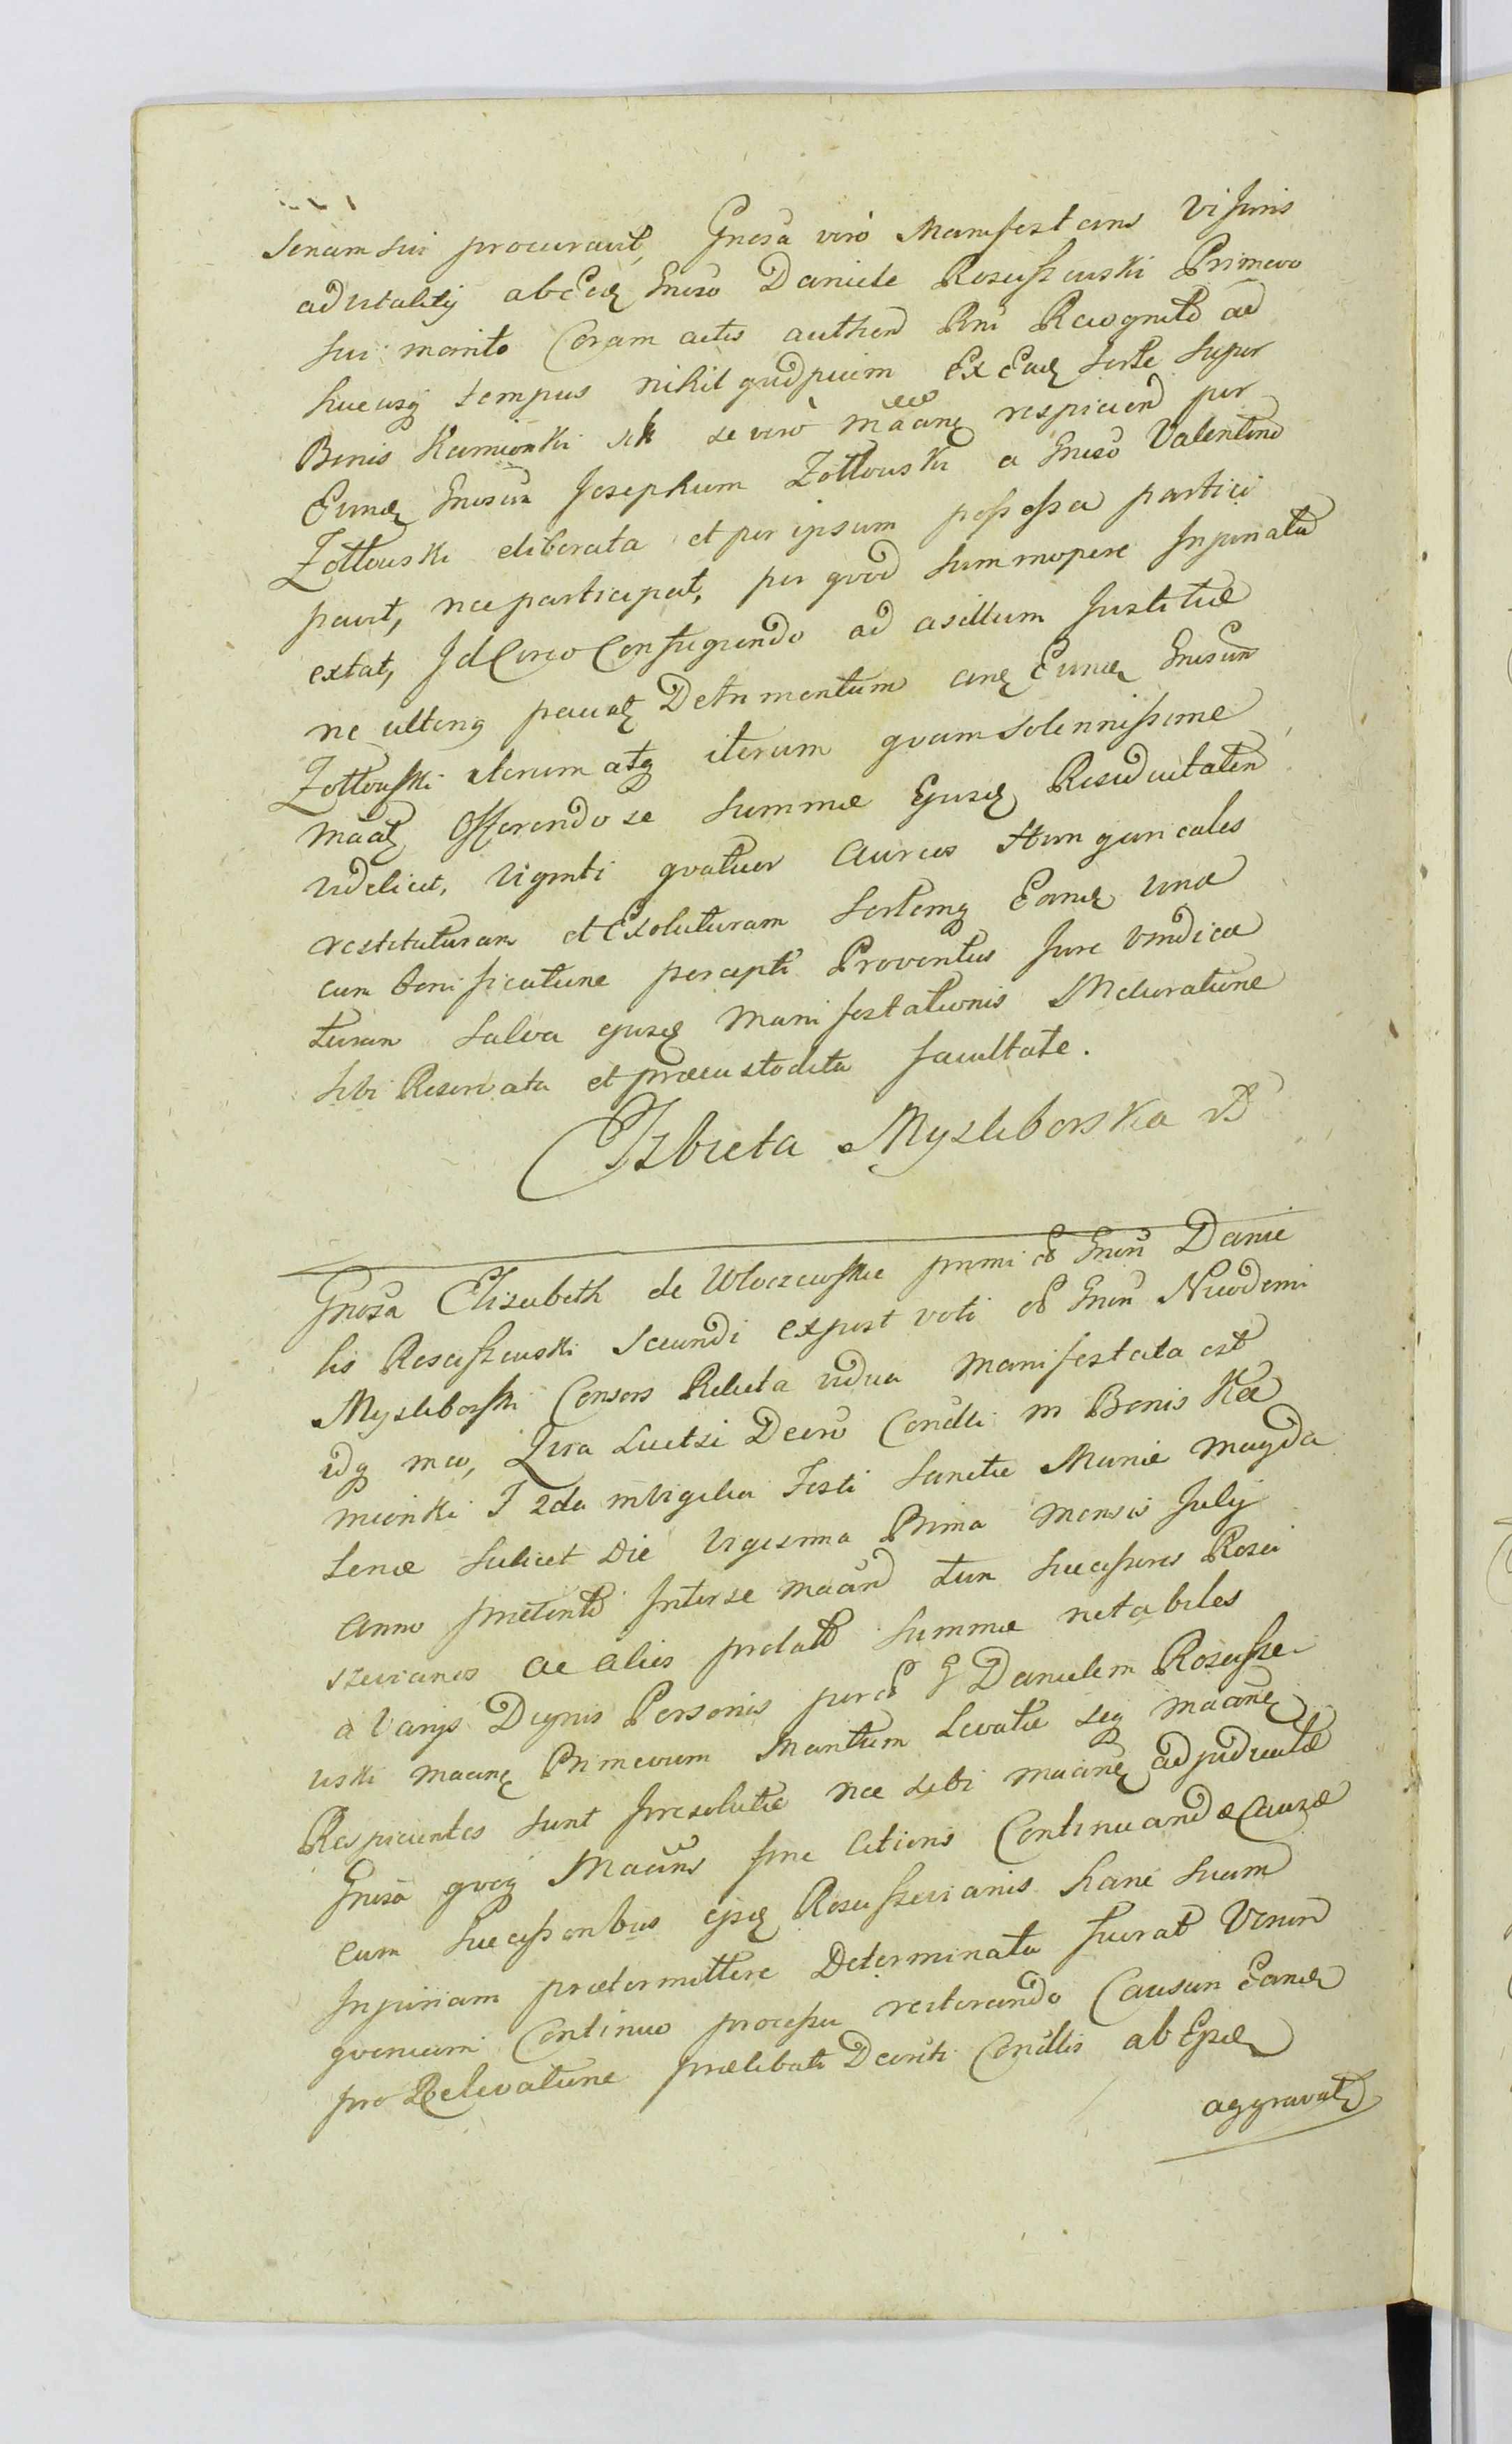 senam sui procuravit, Gnosa vero Manifestans Visuris
advitality ab Eodq Gneroso Daniele Rosciszewski Primevo
sui marito Coram actis authen Prni Recognito ad
hucusq tempus nihil quidpiam Ex Eadq sorte super
Bonis Kamionki se vero maanq respiciend per
Eundq Gnosum Josephum Zołtowski a Gnoso Valentino
Zołtowski eliberata et per ipsum possessa partici
pavit, nec participat, per quod summopere Injuriata
extat, Id Circo Confugiendo ad asillum Justitiae
ne ulterq pauatq Detrimentum cnq Eundq Gnosum
Zołtowski iterum atq iterum quam solennissime
maatq Offerendo se summae Ejusdq Residuitatem
videlicet, viginti quatuor Aureos Hungaricales
restituturam et Exoluturam sortemq Eandq una
cum bonificatione percepti Proventus Jure vindica
turam salva ejusdq Manifestationis Melioratione
sibi Reservata et praecustodita facultate.
Elzbieta Mysliborska
Gnosa Elizabeth de Włoczewskie primi od Gnosi Danie
lis Rosciszewski secundi expost voti od Gnosi Nicodemi
Mysliborski Consors Relicta vidua manifestata est
idq in eo, Quia Luctsi Decro Condli in Bonis Ka
mionki F 2da in vigilia Festi Sanctae Mariae Magda
lenae scilicet Die vigesima Prima mensis July
Anno praetento Inter se maand tum successores Rosci
szevianos ac alios prolato summae notabiles
a Varys Dignis Personis per od G Danielem Rosciszew
uski maanq Primevum Maritum Levatae seq maanq
Respicientes sunt Irresolutae nec sibi maanq adjudicatae
Gnosa quoq Maans sine Actions Continuandae Causae
cum successoribus ejsdq Rosciszevianis hanc suam
Injuriam praetermittere Determinata fuerat Verum
quoniam Continuo processu reiterando Causam Eandq
pro Relevatione praelibati Decreti Condlis ab Ejsdq
aggravatq